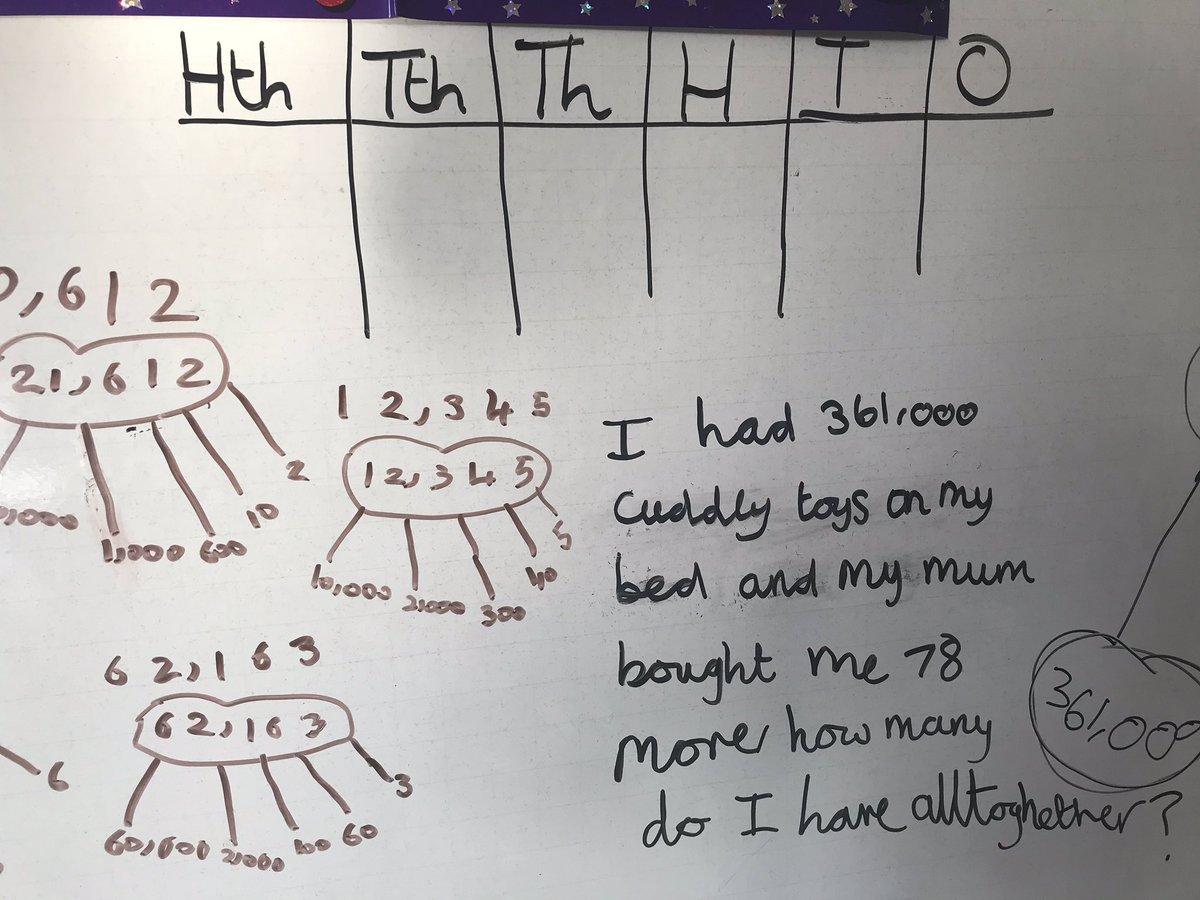 Hth Tth Th H T O
0,612
21,612
1,000 600 10 2
12,345
12,345
10,000 2,000 300 40 5
62,163
62,163
2,000 100 60 3
6
I had 361,000
cuddly toys on my
bed and my mum
bought me 78
more how many
do I have alltoghether?
361,000